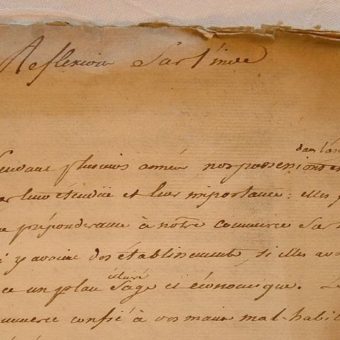 Reflexion Sur l'inde
dans l'an
endant plusieurs années nos possessions
ar leur étendue et leur importance: elles
prépondérance à notre commerce sur
y avoient des établissements, si elles
étaré
ce un plan sage et économique. Le
mmerce confié à vos mains mal-habil